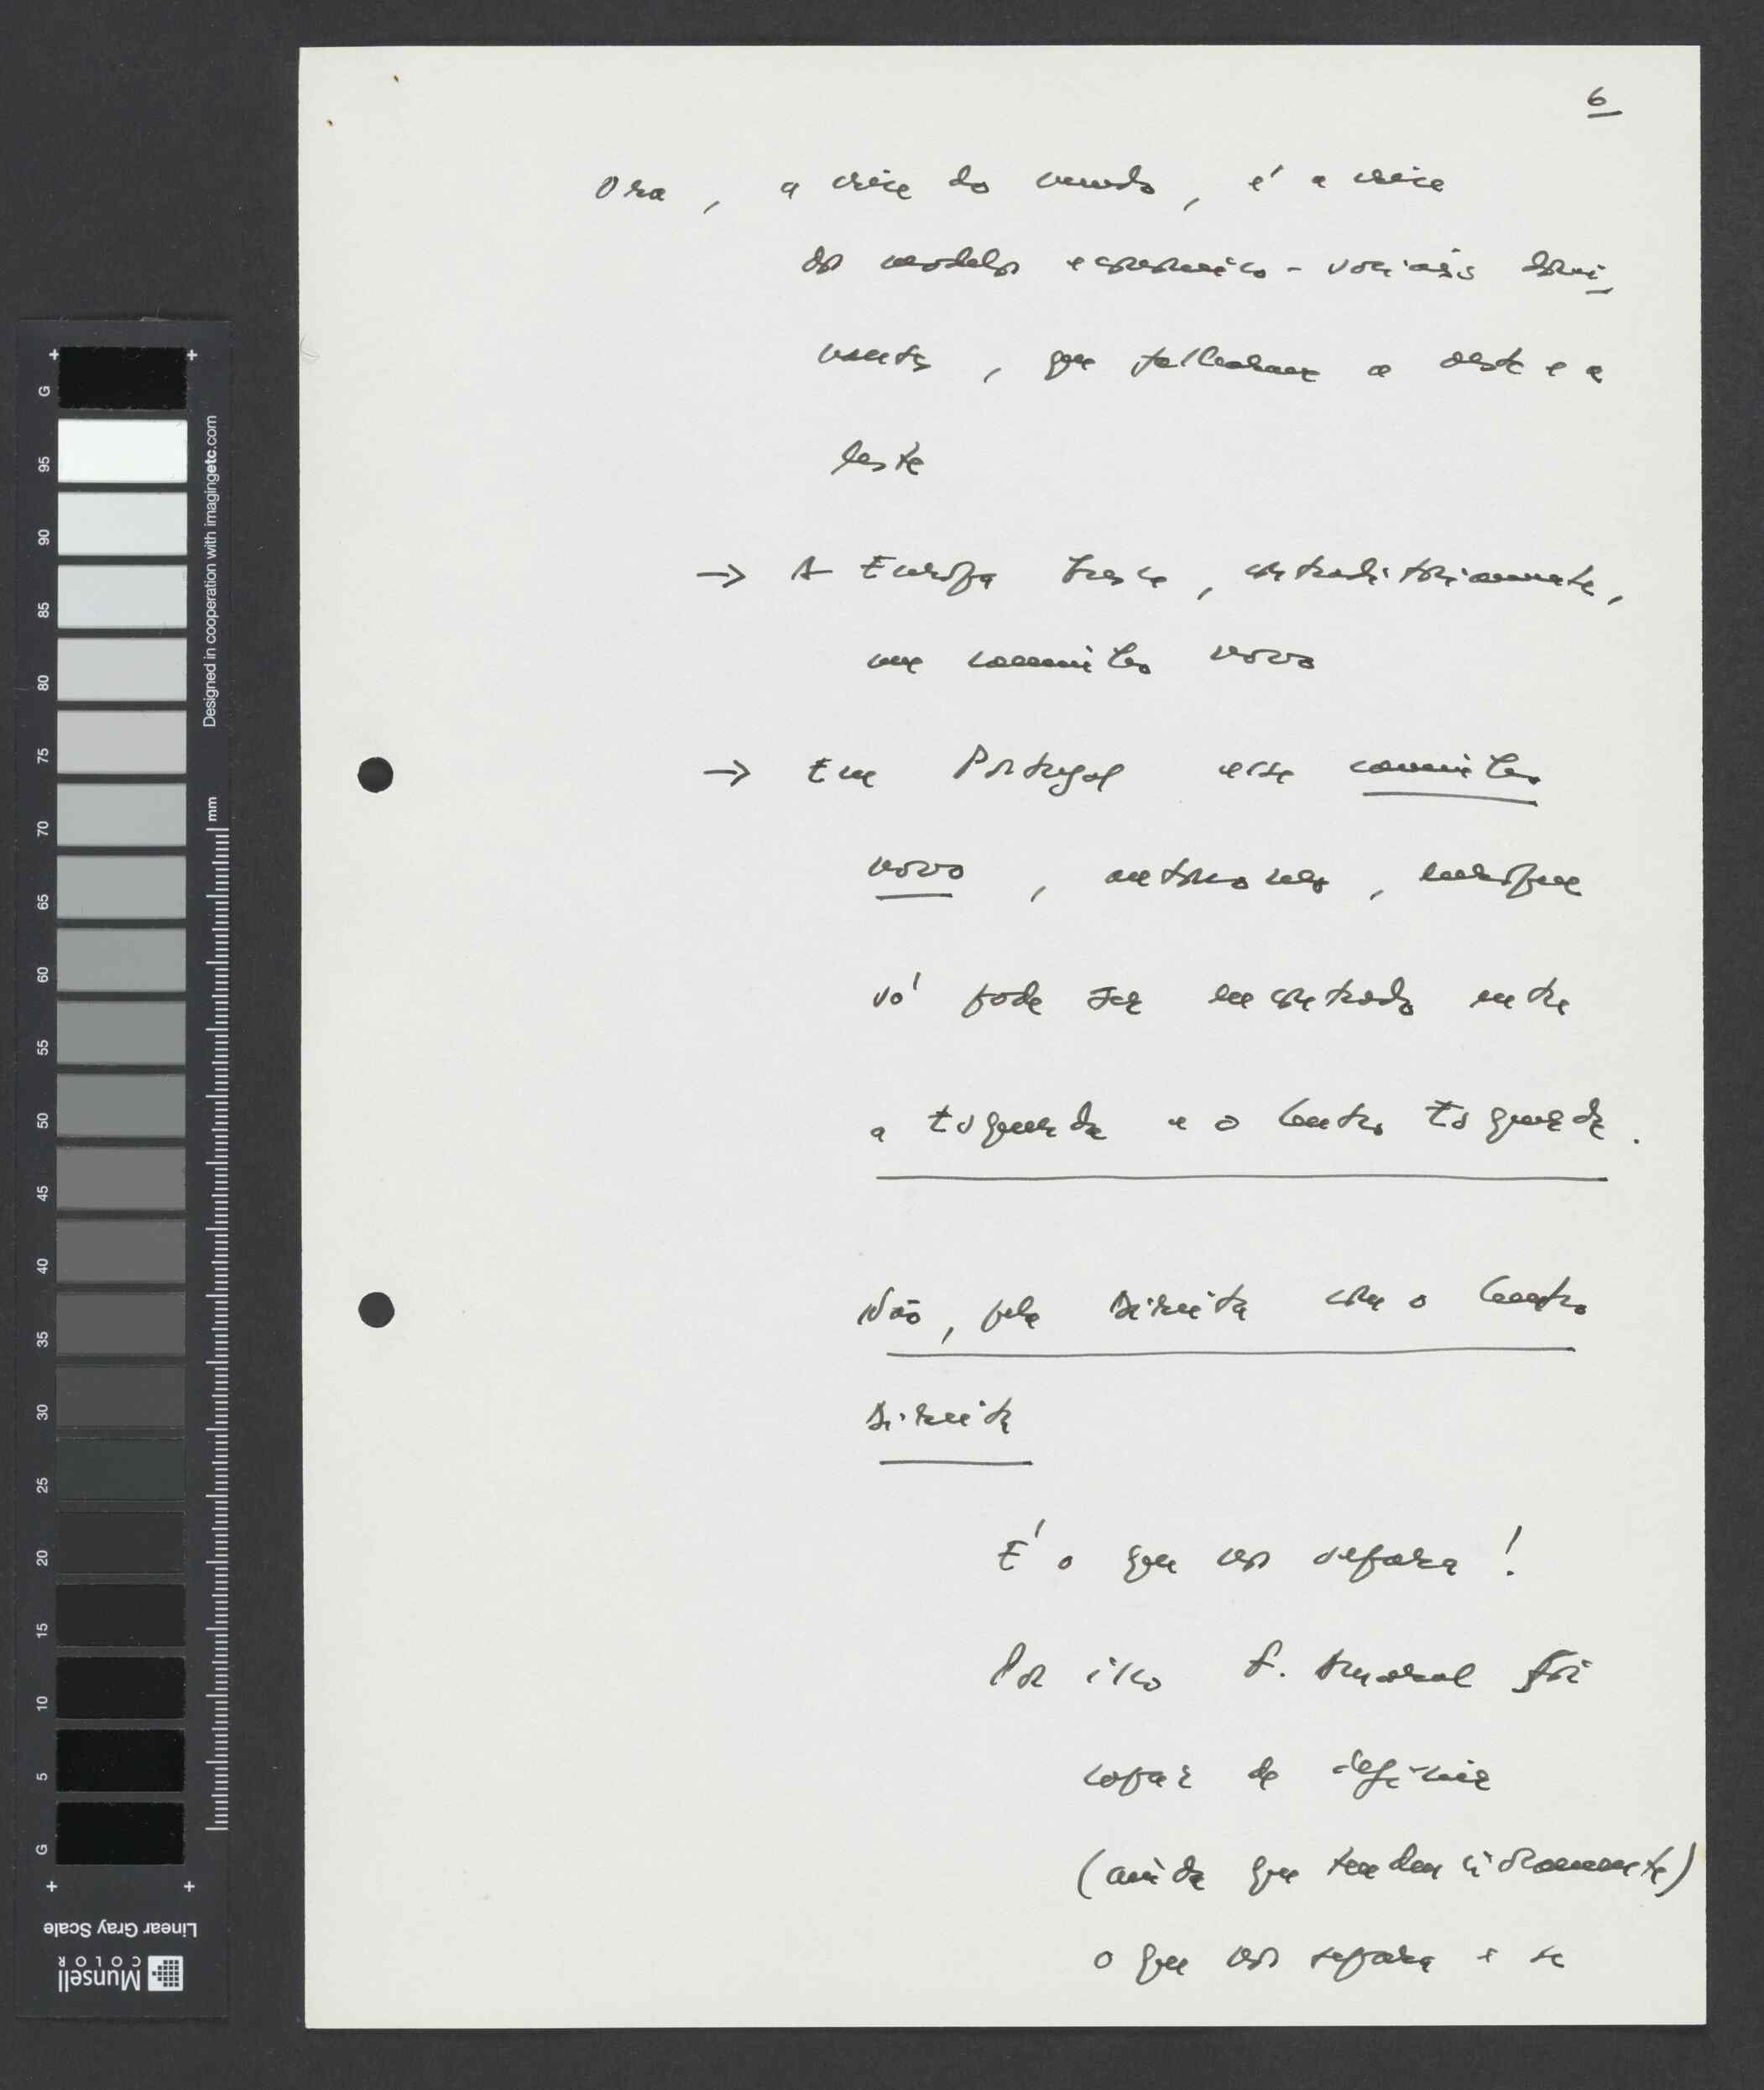 6
Ora, a crise do mundo, é a crise
dos modelos económico-sociais domi
nantes, que falharam a oeste e a
leste
→ A Europa busca, contraditoriamente,
um caminho novo
→ Em Portugal esse caminho
novo, autónomo, europeu
só pode ser encontrado entre
a Esquerda e o Centro Esquerda.
Não, pela Direita com o Centro
Direita
É o que nos separa!
Por isso F. Amaral foi
capaz de definir
(ainda que tendenciosamente)
o que nos separa e se
G
95
90
85
80
75
70
65
60
55
50
45
40
35
30
25
20
15
10
5
G
mm
Designed in cooperation with imagingetc.com
Linear Gray Scale
Munsell
COLOR